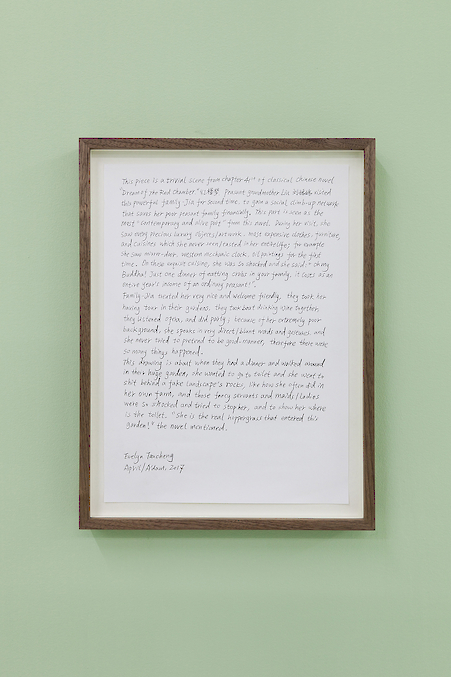 This piece is a trivial scene from chapter 41st of classical Chinese novel
"Dream of the Red Chamber" 红楼梦 Peasant grandmother Liu visited
this powerful family Jia for second time, to gain a social climb-up network
that saves her poor peasant family financially. This part is seen as the
most "contemporary and alive part" from this novel. During her visit, she
saw many precious luxury objects/artwork, most expensive clothes, furniture,
and cuisines which she never seen/tasted in her entire life; for example
she saw mirror-door, western mechanic clock, oil paintings for the first
time. On these exquisite cuisine, she was so shocked and she said: "Oh my
Buddha! Just one dinner of eatting crabs in your family, it costs as an
entire year's income of an ordinary peasants!".
Family Jia treated her very nice and welcome friendly, they took her
having tour in their gardens, they took boat drinking wine together,
they listened opera, and did party; because of her extremely poor
background, she speaks in very direct/blunt words and gestures and
she never tried to pretend to be good-manner, therefore there were
so many things happened.
This drawing is about when they had a dinner and walked around
in their huge garden, she wanted to go to toilet and she went to
shit behind a fake landscape's rocks, like how she often did in
her own farm, and those fancy servants and maids/ladies
were so shocked and tried to stop her, and to show her where
is the toilet. "She is the real hoppergrass that entered this
garden!" the novel mentioned.
Evelyn Taocheng
April, 2017